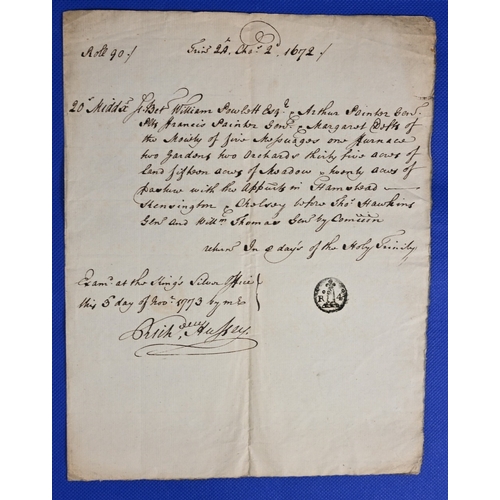 Roll 90 /
Trin 24 Chas 2d 1672 /
20s Middx Js Bet William Powlett Esqr & Arthur Painter Gent
Plts Francis Painter Gent & Margaret Defts of
the Moiety of five Messuages one furnace
two Gardens two Orchards thirty five acres of
land fifteen acres of Meadow & twenty acres of
pasture with the Appurts in Hamstead
Kensington & Chelsey before Thos Hawkins
Gent and Willm Thomas Gent by Comission
return In 8 days of the Holy Trinity
Examd at the Kings Silver Office
this 5 day of Novr 1773 by me
Hussey
R 4